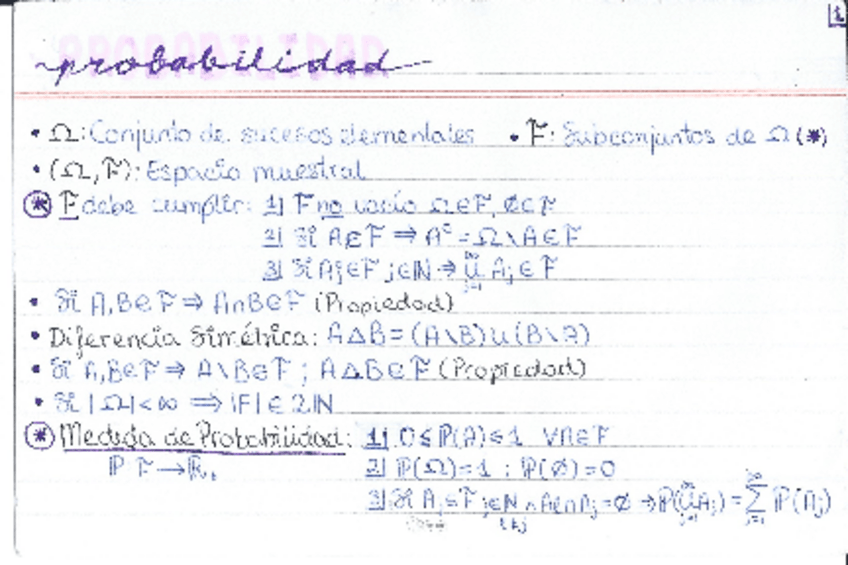 1
probabilidad
• Ω: Conjunto de sucesos elementales • F: Subconjuntos de Ω (*)
• (Ω, F): Espacio muestral
* F debe cumplir: 1) F no vacío Ω∈F, ∅∈F
2) Si A∈F ⇒ Aᶜ = Ω\A∈F
3) Si Aj∈F j∈ℕ → ∪_{j=1}^{∞} Aj ∈ F
• Si A,B∈F ⇒ A∩B∈F (Propiedad)
• Diferencia Simétrica: A△B = (A\B)∪(B\A)
• Si A,B∈F ⇒ A\B∈F ; A△B∈F (Propiedad)
• Si |Ω|<∞ ⇒ |F|∈2ℕ
* Medida de Probabilidad: 1) 0≤ℙ(A)≤1 ∀A∈F
ℙ: F→ℝ₊ 2) ℙ(Ω)=1 ; ℙ(∅)=0
3) Si Aj∈F j∈ℕ ∧ Ai∩Aj=∅ i≠j ⇒ ℙ(∪_{j=1}^{∞} Aj) = ∑_{j=1}^{∞} ℙ(Aj)